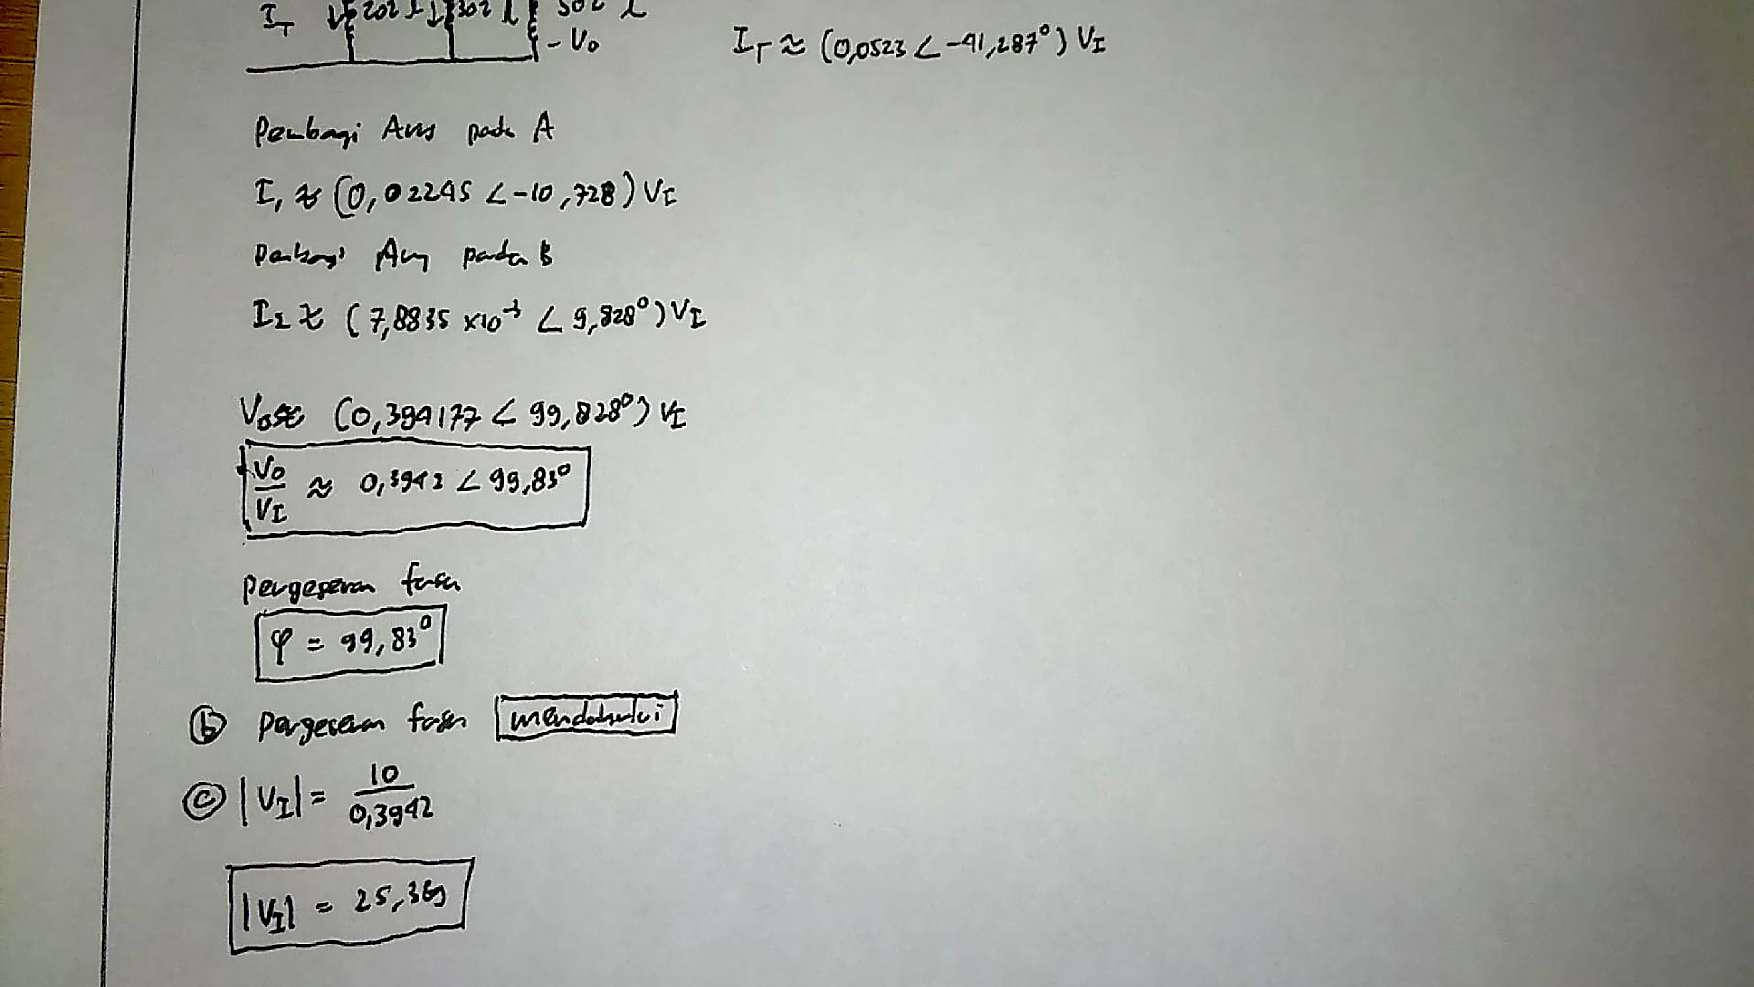 I_T 20Ω 30Ω 50Ω
- V_o
I_T ≈ (0,0523 ∠ -41,287°) V_I
Pembagi Arus pada A
I_1 ≈ (0,02245 ∠ -10,728) V_I
Pembagi Arus pada B
I_2 ≈ (7,8835 × 10^-3 ∠ 9,828°) V_I
V_o ≈ (0,394177 ∠ 99,828°) V_I
V_o / V_I ≈ 0,3942 ∠ 99,83°
Pergeseran fasa
φ = 99,83°
(b) Pergeseran fasa mendahului
(c) |V_I| = 10 / 0,3942
|V_I| = 25,369